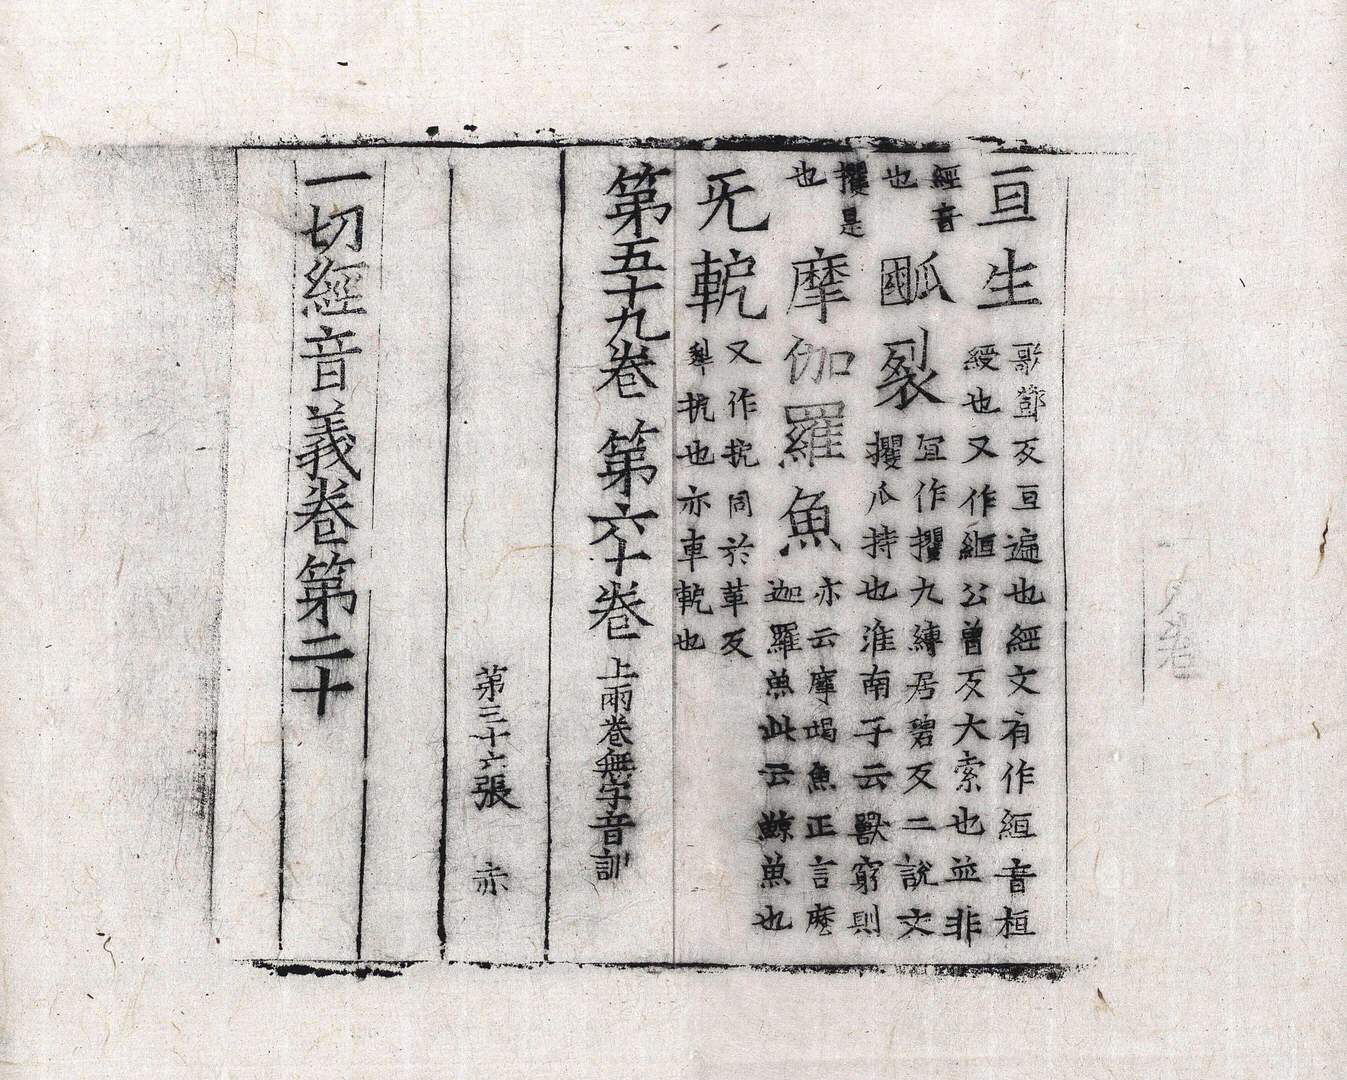 亘生歌鄧反亘遍也經文有作絙音桓
綬也又作緪公曾反大索也並非
經音
也
裂冝作攫九縛居碧反二說文
攫爪持也淮南子云獸窮則
攫是
也
摩伽羅魚亦云摩竭魚正言麼
迦羅魚此云鯨魚也
旡軶又作抗同於革反
犁抗也亦車軶也
第五十九卷 第六十卷上兩卷無字音訓
第三十六張 赤
一切經音義卷第二十